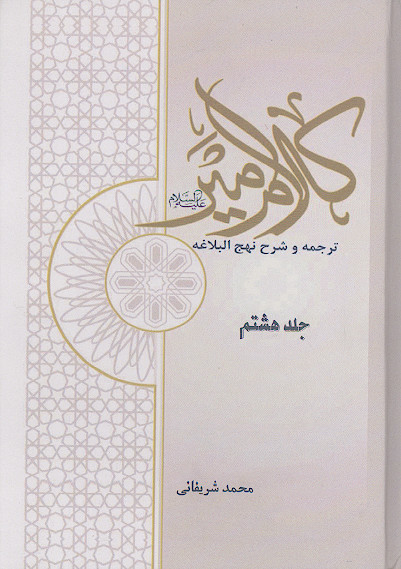 کلام امیر
علیه‌السلام
ترجمه و شرح نهج البلاغه
جلد هشتم
محمد شریفانی